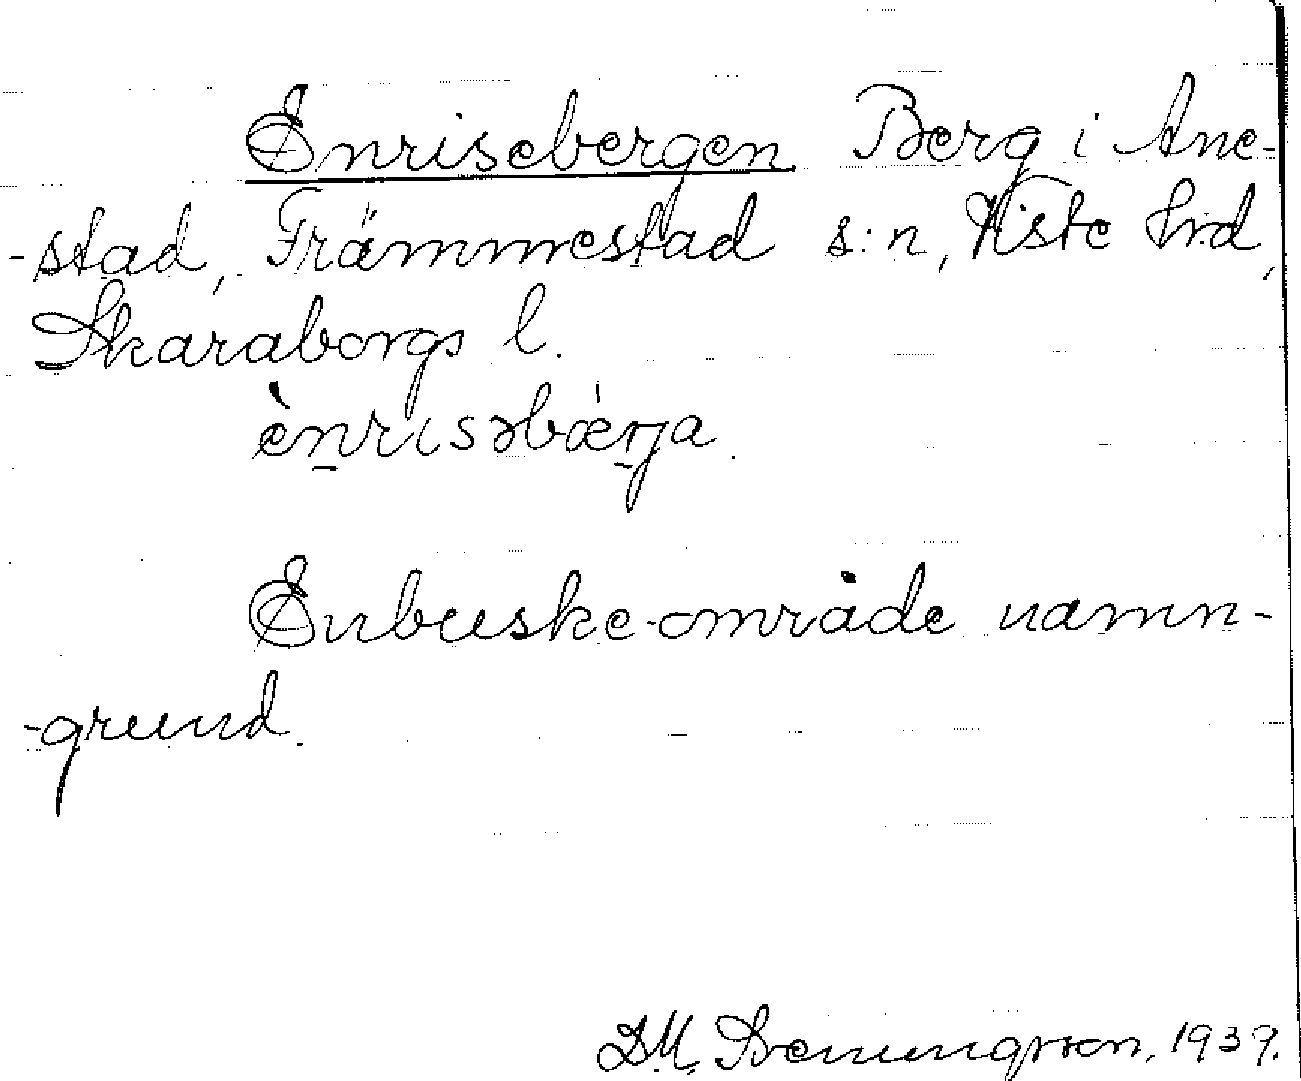 Enrisebergen Berg i Ane-
-stad, Främmestad s:n, Viste hrd,
Skaraborgs l.
ènrisəbærja.
Enbuske-område namn-
-grund.
D.M. Svenungsson, 1939.